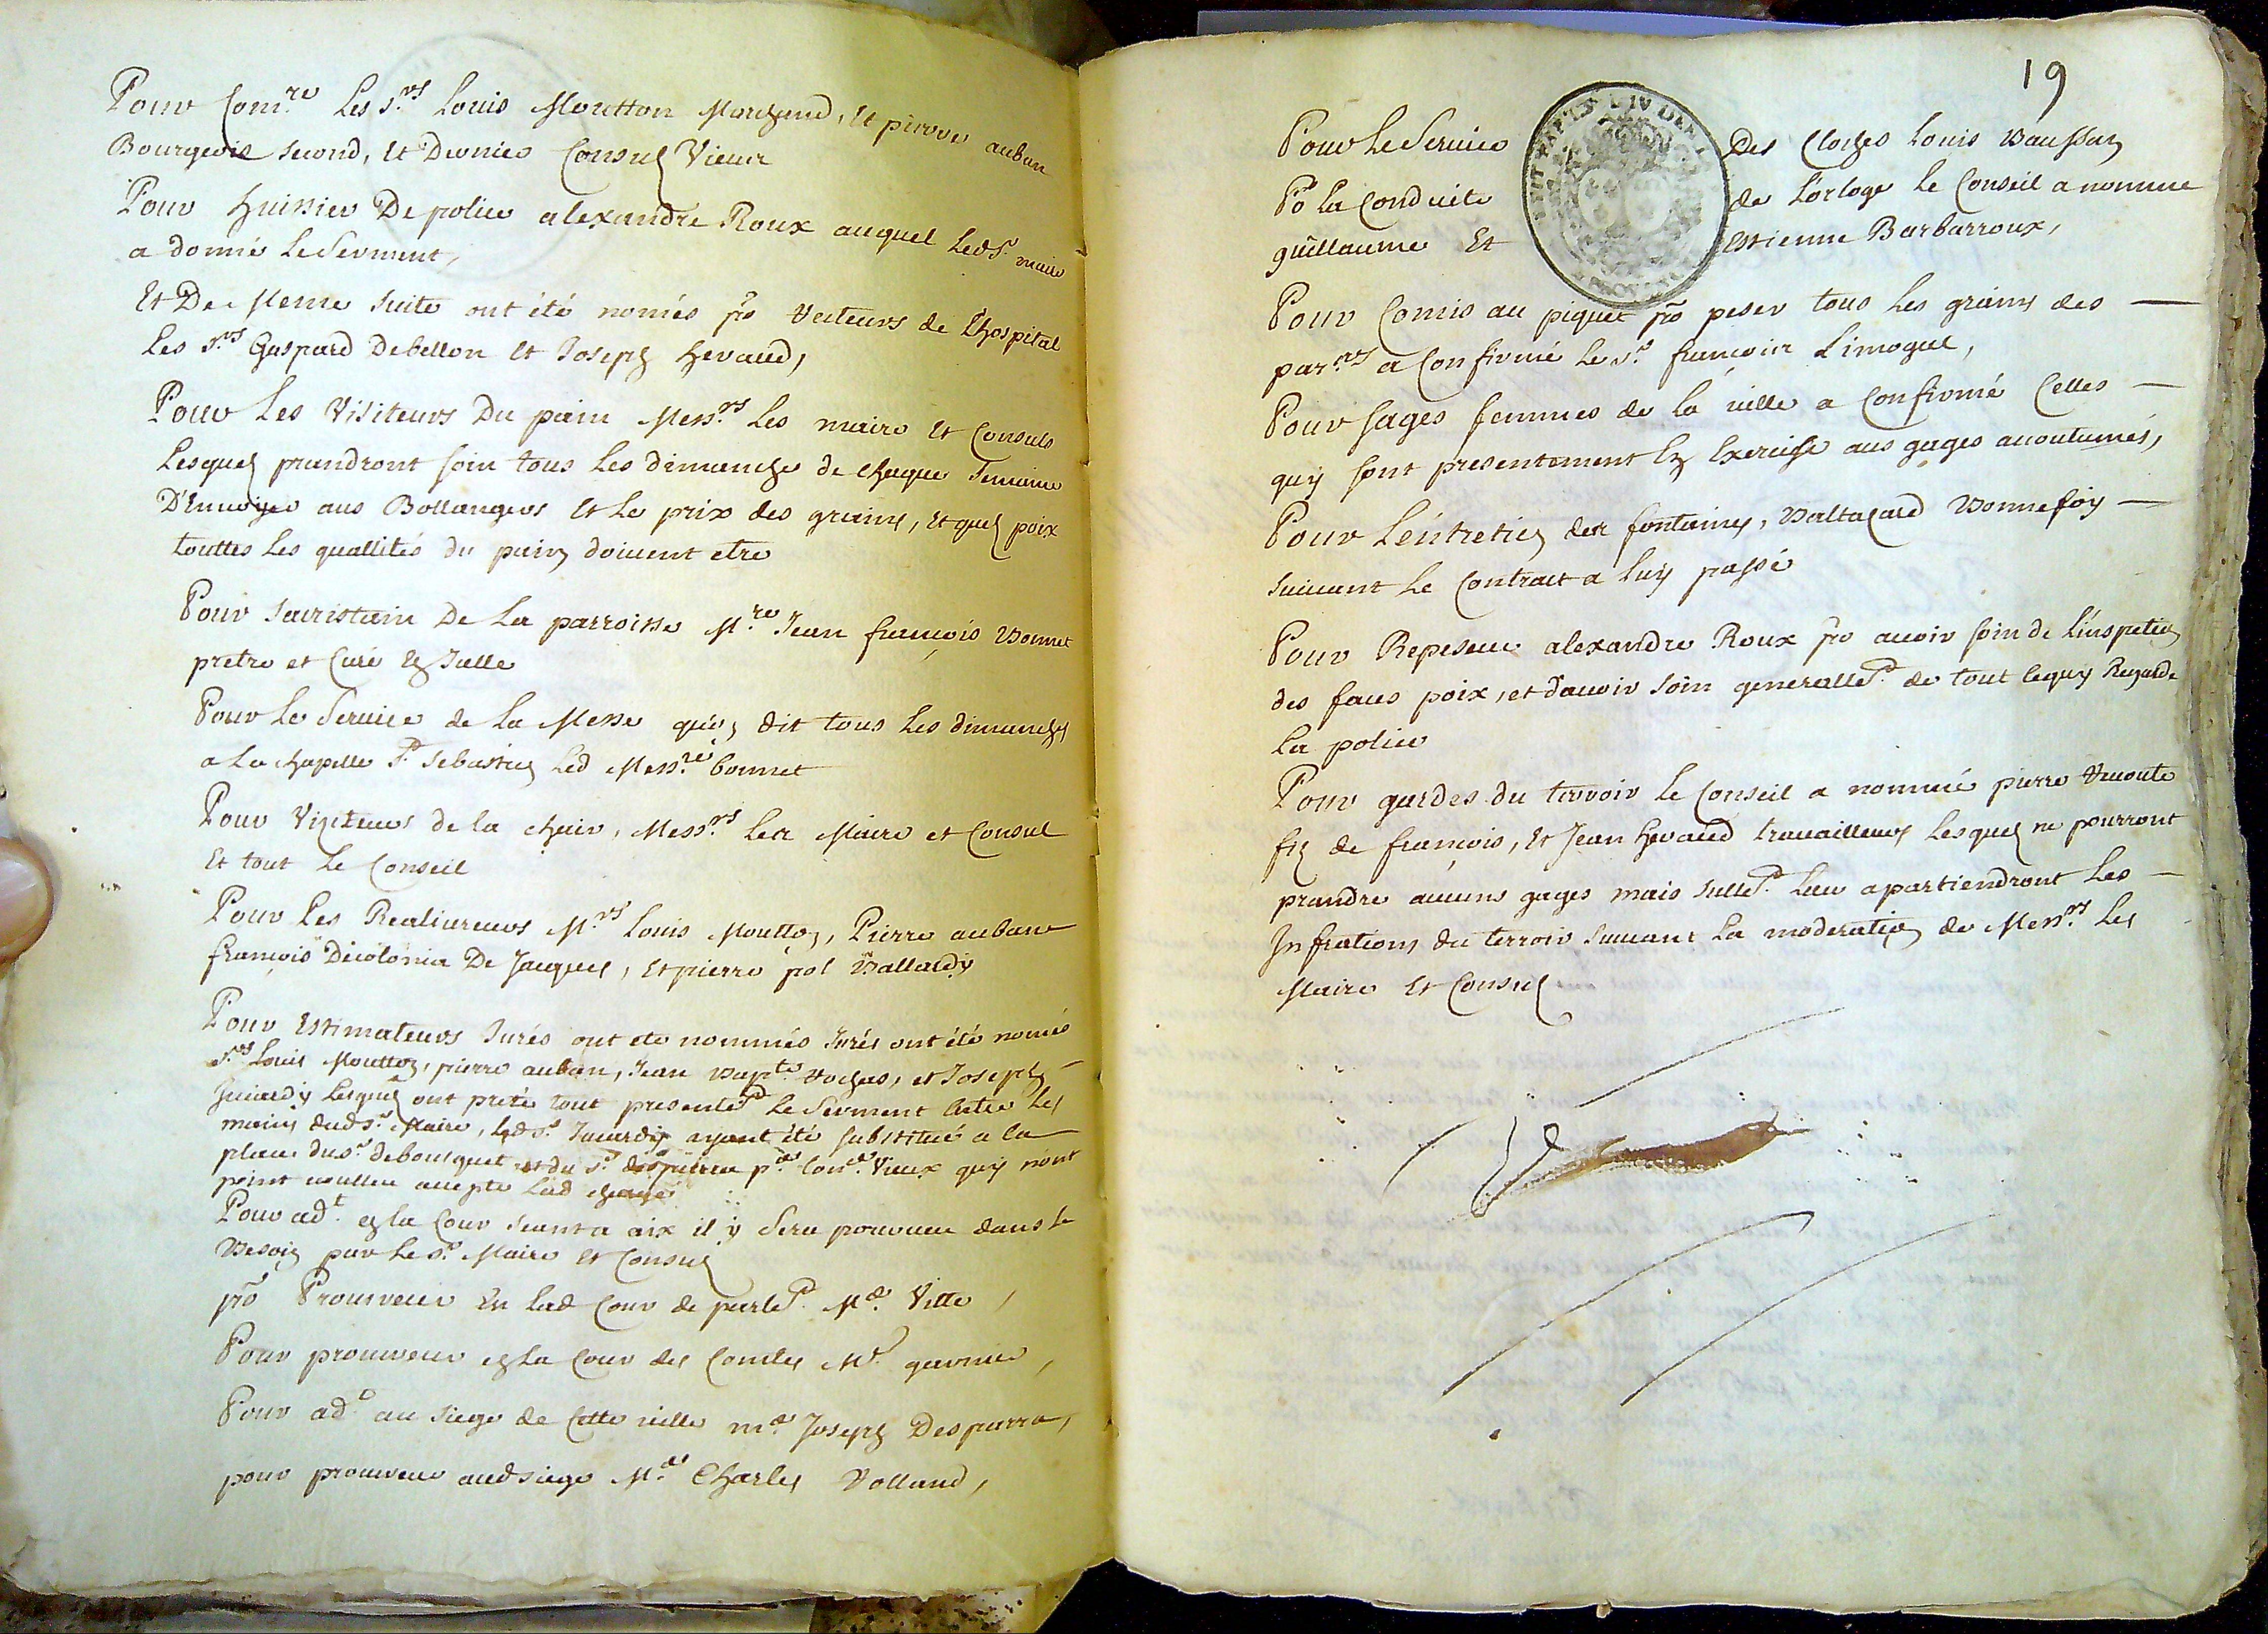 Pour Com.re Les S.rs Louis Moutton Marchand, Et pierre auban
Bourgeois second, Et Dernier Consul Vieux
Pour huissier De police alexandre Roux auquel Led S.r maire
a donné Le Serment,
Et De Meme suite ont été només po recteurs de Lhospital
Les S.rs Gaspard Debellon Et Joseph hevaud,
Pour Les Visiteurs Du pain Mess.rs Les maire Et Consuls
Lesquels prandront soin tous Les dimanche de chaque semaine
D'Envoyer aus Bollangers Et Le prix des grains, Et quel poix
touttes Les quallités du pain doivent etre
Pour Sacristain De La parroisse M.re Jean françois Bonnet
pretre et Curé En Icelle
Pour Le Service de La Messe qu'on dit tous Les dimanches
a La chapelle S.t Sebastien Led Mess.re bonnet
Pour Visiteurs de la chair, Mess.rs Les Maire et Consul
Et tout Le Conseil
Pour Les Reallivreurs M.rs Louis Moutton, Pierre auban
françois Decolonia De Jacques, Et pierre pol Ballardy
Pour Estimateurs Jurés ont ete nommés Jurés ont été només
S.rs Louis Moutton, pierre auban, Jean Bap.te Rochas, et Joseph
Jucardy Lesquels ont prété tout presente.t Le Serment Entre Les
mains dud S.r Maire, Led S.r Jucardy ayant été substitué a la
place du S.r debousquet et du S.r pierre p.er Con.l Vieux quy n'ont
point voulleu accepter Lad charge
Pour ad.t en la Cour seant a aix il y Sera pourveu dans Le
Besoin par Le S.r Maire Et Consul
po Proureur En Lad Cour de parle.t M.e Vitte,
Pour proureur en La Cour des Comtes M.e garnier,
Pour ad.t au siege de Cette ville m.e Joseph Desparra,
pour proureur aud siege M.e Charles Volland,
19
Pour Le Service Des Cloches Louis Baussan
Po La Conduite de L'orloge Le Conseil a nommé
guillaume Et Estienne Barbarroux,
Pour Comis au piquet po peser tous Les grains des
par.rs a Confirmé Le S.r francois Limogue,
Pour sages femmes de la ville a Confirmé Celles
quy sont presentement En Exercisse aus gages acoutumés,
Pour L'éntretien des fontaines, Baltazard Bonnefoy
suivant Le Contract a Luy passé
Pour Repeseur alexandre Roux po avoir soin de L'inspetion
des faus poix, et d'avoir soin generalle.t de tout cequy Regarde
La police
Pour gardes du terroir Le Conseil a nommé pierre
fis de françois, Et Jean hevaud travailleurs Lesquels ne pourront
prandre aucuns gages mais sulle.t Leur apartiendront Les
Infrations du terroir suivant La moderation de Mess.rs Les
Maire Et Consul